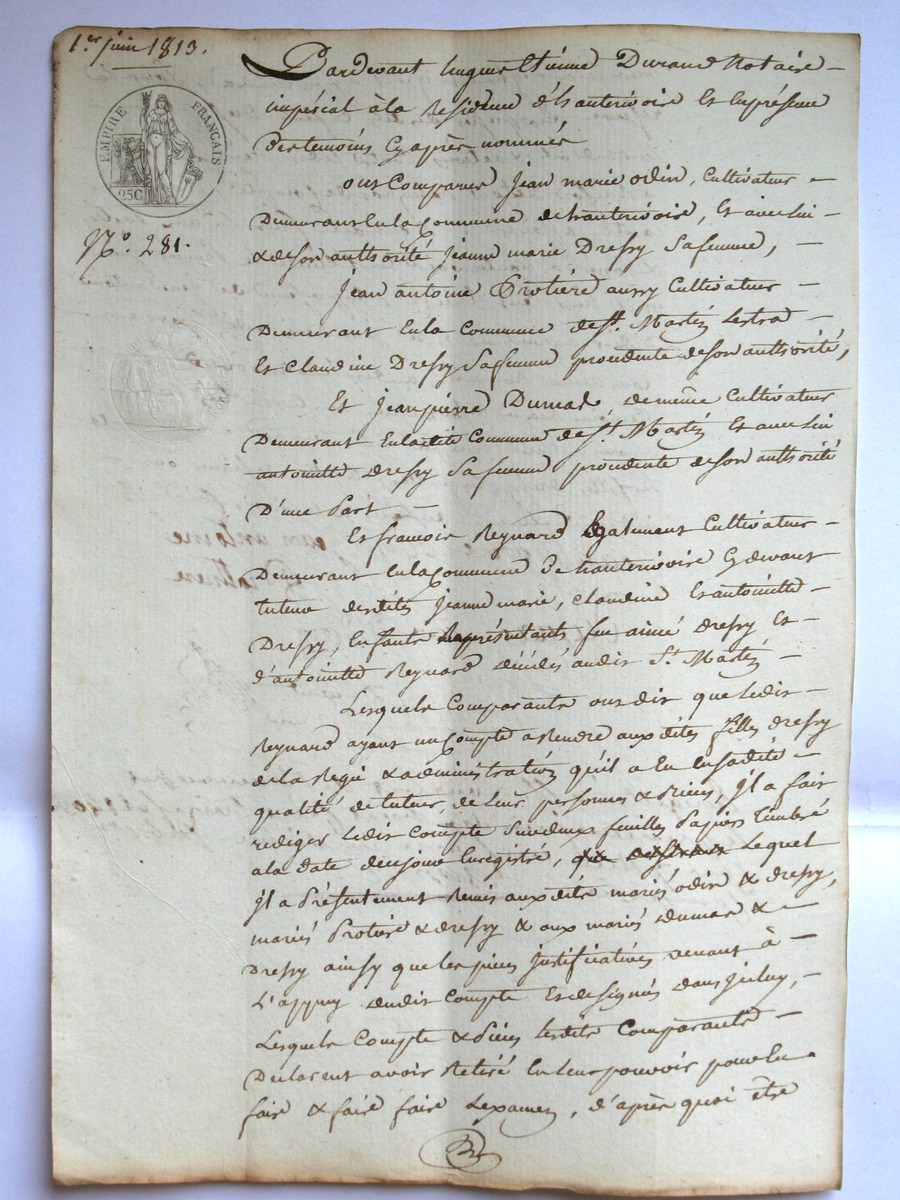 1.er juin 1813.
EMPIRE FRANÇAIS
25C
N.o 281.
Pardevant hugues Etienne Durand Notaire
impérial à la Residence d'hauterivoire Et En présence
Des temoins Cyaprès nommés
ont Comparus Jean marie odin, Cultivateur
Demeurant En la Commune de hauterivoire, Et avec lui
& de son authorité Jeanne marie Dressy Sa femme,
Jean antoine Protière aussy Cultivateur
Demeurant En la Commune de St. Martin Lestra
Et Claudine Dressy Sa femme procédente de son authorité,
Et Jean pierre Dumas de même Cultivateur
Demeurant En la dite Commune de St. Martin Et avec lui
antoinette dressy Sa femme procédente de son authorité
D'une Part
Et francois Reynard Egalement Cultivateur
Demeurant En la Commune De hauterivoire Cydevant
tuteur desdites Jeanne marie, Claudine Et antoinette
Dressy, Enfants Représentants feu aimé dressy Et
d'antoinette Reynard décédés audit St. Martin
Lesquels Comparants ont dit que ledit
Reynard ayant un Compte a Rendre auxdites filles dressy
de la Regie & administration qu'il a Eu En sadite
qualité de tuteur, de leur personnes & Biens, Il a fait
rediger ledit Compte Sur deux feuilles Papier timbré
a la date de ce jour Enregistré, Lequel
Il a Présentement Remis auxdits mariés odin & dressy,
mariés Protière & dressy & aux mariés dumas &
Dressy ainsy que les pièces Justificatives venant à
L'appuy dudit Compte Et designés dans Jceluy,
Lesquels Compte & Pièces lesdits Comparants
Déclarent avoir Retiré En leur pouvoir pour En
faire & faire faire Lexamen, d'après quoi être